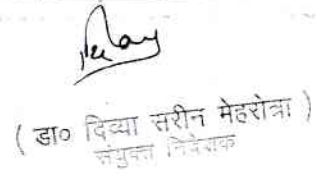 ( डा० दिव्या सरीन मेहरोत्रा )
संयुक्त निदेशक